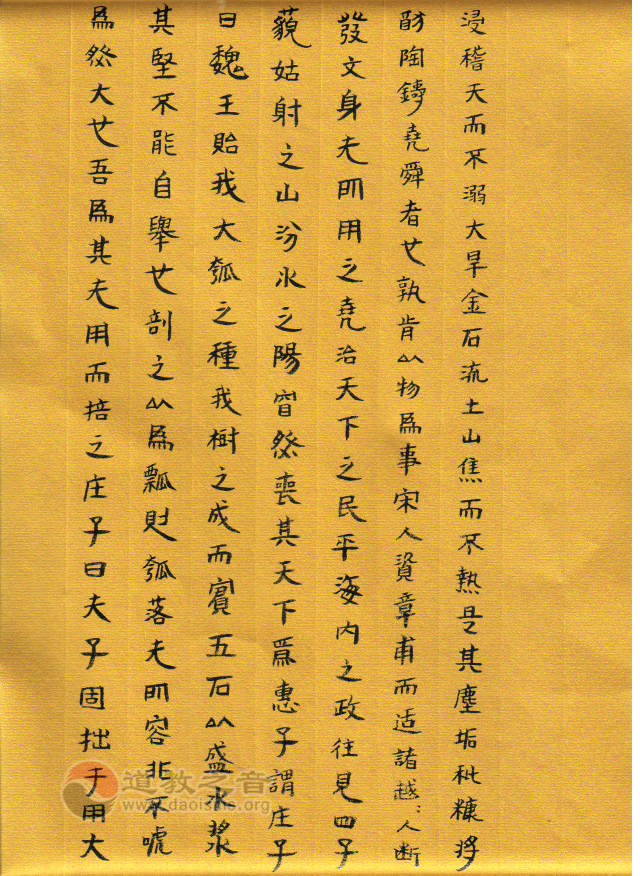 浸稽天而不溺大旱金石流土山焦而不熱是其塵垢秕糠將
猶陶鑄堯舜者也孰肯以物為事宋人資章甫而适諸越:人断
發文身无所用之堯治天下之民平海内之政往見四子
藐姑射之山汾水之陽窅然喪其天下焉惠子謂庄子
曰魏王貽我大瓠之種我樹之成而實五石以盛水漿
其堅不能自舉也剖之以為瓢則瓠落无所容非不呺
為然大也吾為其无用而掊之庄子曰夫子固拙于用大
道教之音
www.daoisms.org